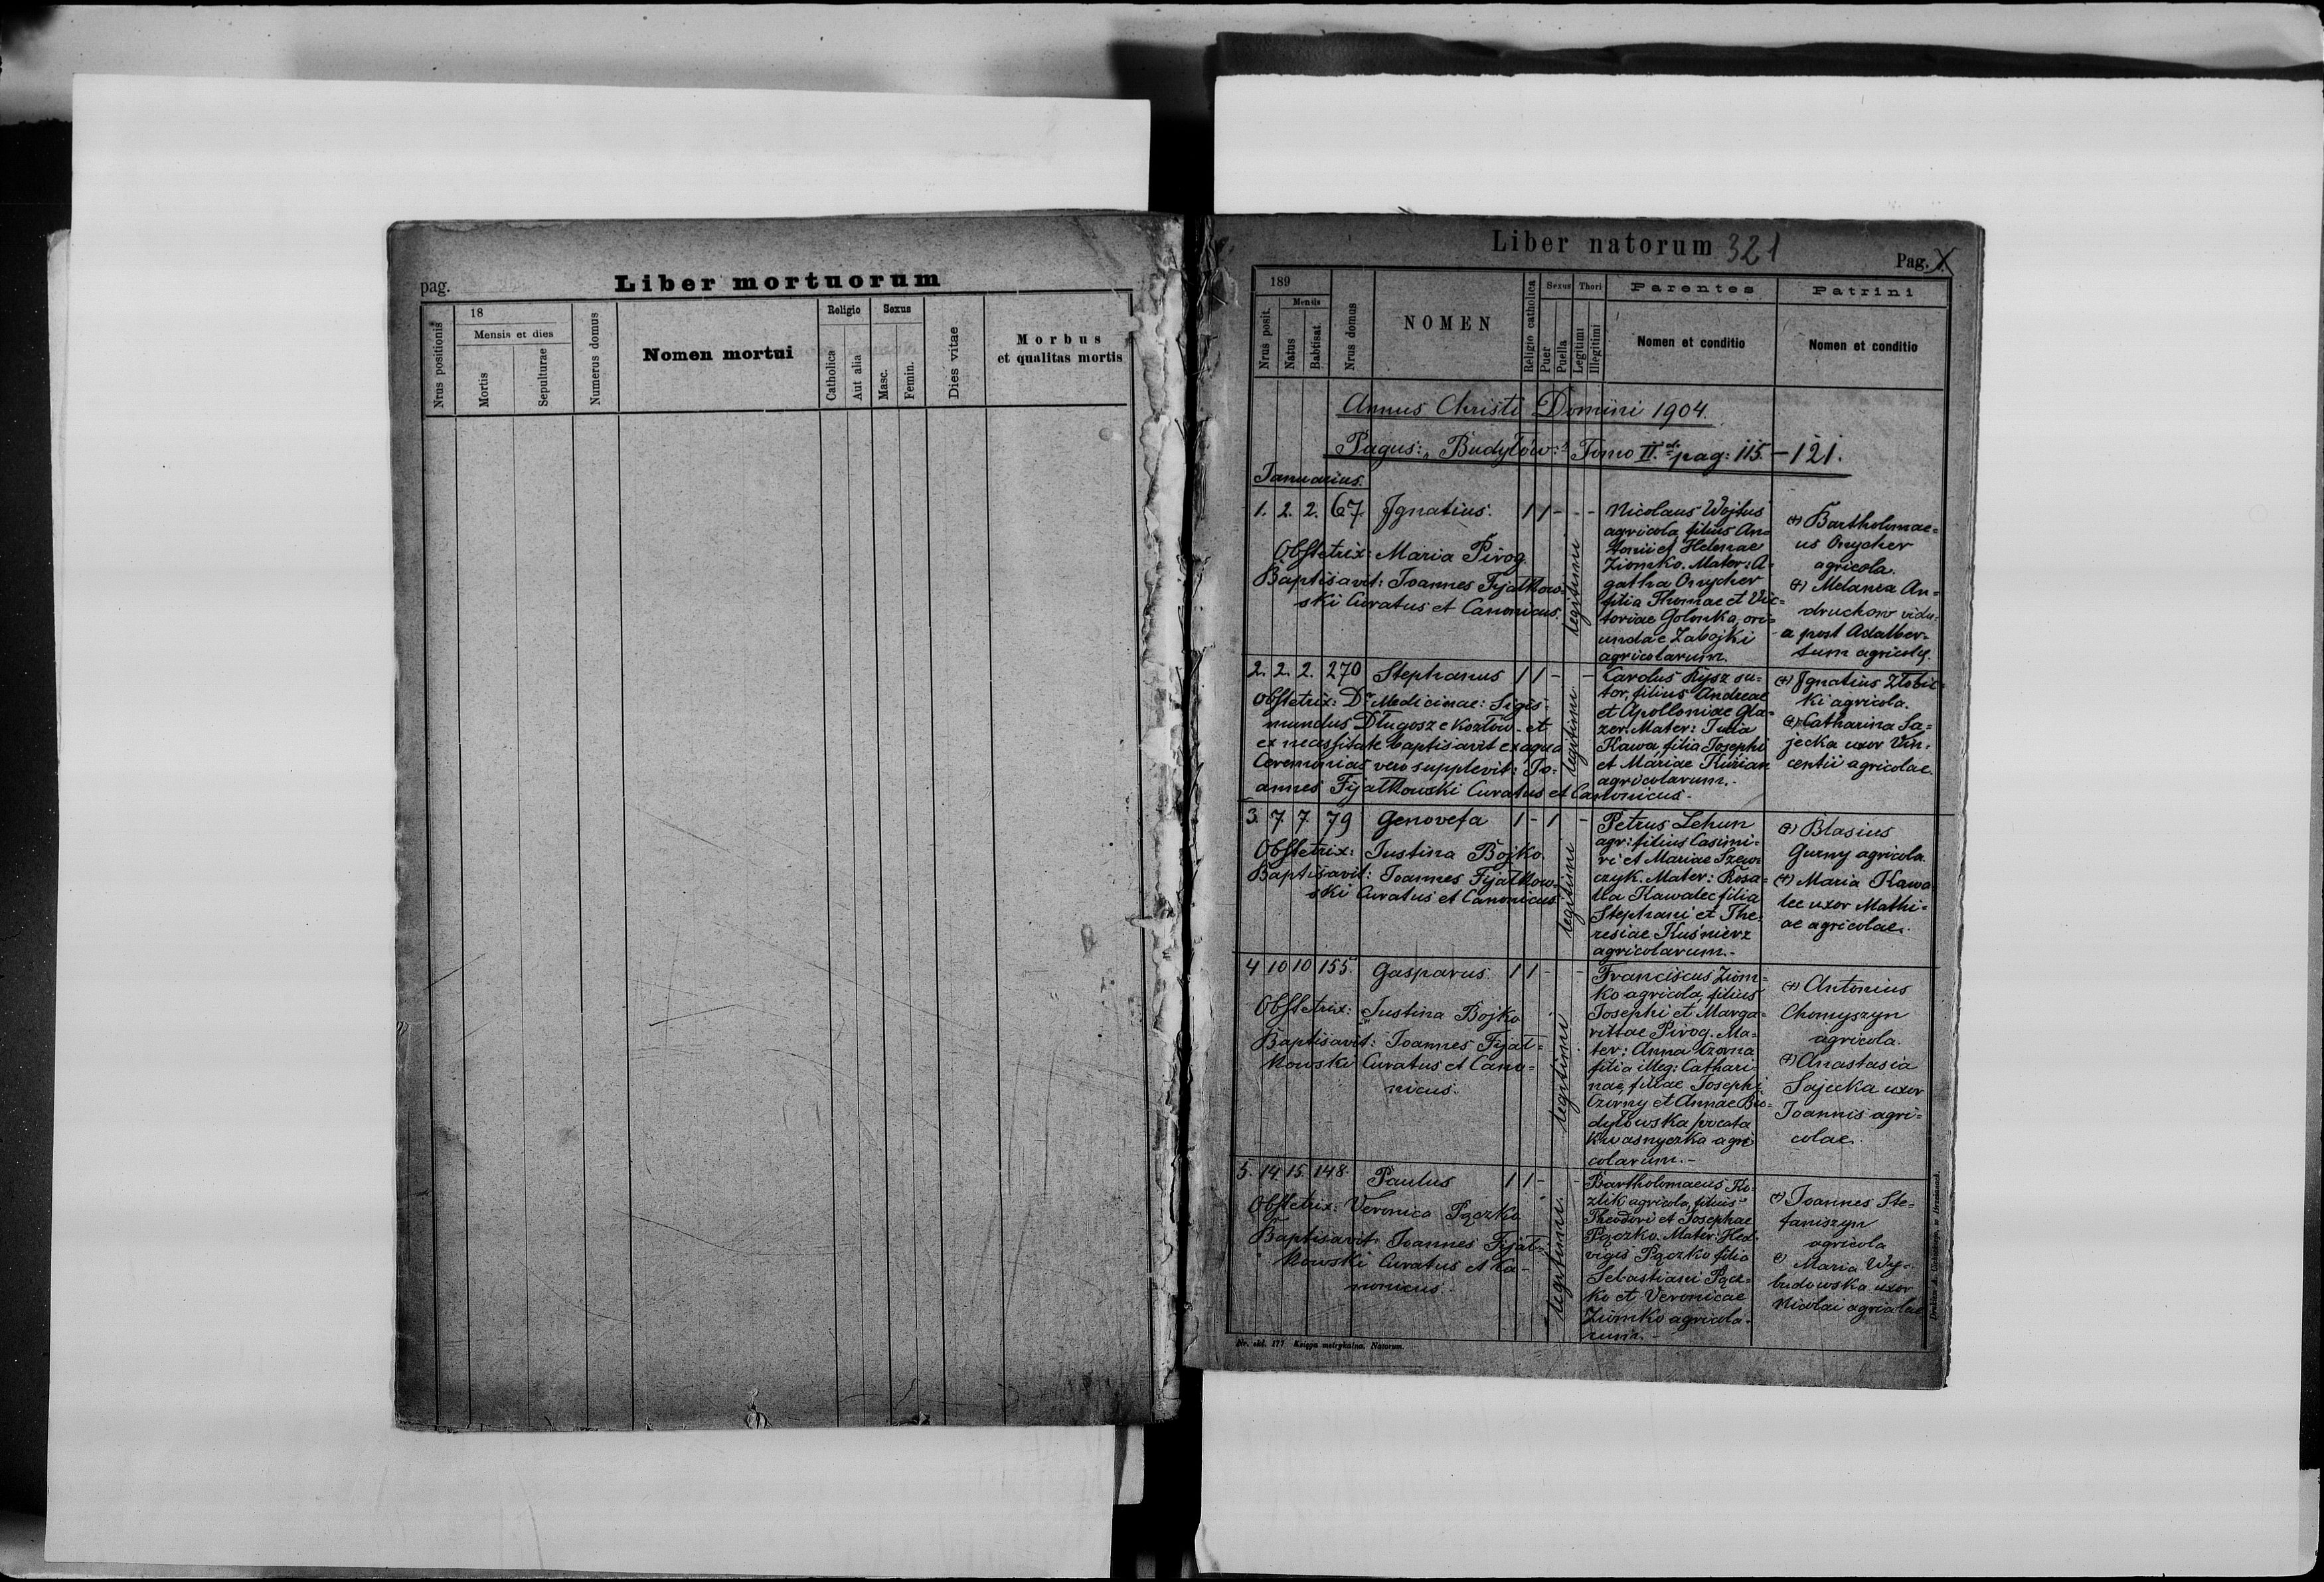 pag.
Liber mortuorum
Nrus positionis
18
Mensis et dies
Mortis
Sepulturae
Numerus domus
Nomen mortui
Religio
Catholica
Aut alia
Sexus
Masc.
Femin.
Dies vitae
Morbus
et qualitas mortis
Liber natorum 321
Pag.
189
Nrus posit.
Mensis
Natus
Babtisat.
Nrus domus
NOMEN
Religio catholica
Sexus
Puer
Puella
Thori
Legitimi
Illegitimi
Parentes
Nomen et conditio
Patrini
Nomen et conditio
Annus Christi Domini 1904.
Pagus: "Budyłów:" Tomo II. pag: 115. - 121.
Januarius.
1. 2. 2. 67. Ignatius. 1 1 - - -
Obstetrix: Maria Pirog.
Baptisavit: Joannes Fijałkow=
ski Curatus et Canonicus.
legitimi
Nicolaus Wojtus
agricola, filius An=
tonii et Helenae
Ziomko. Mater: A=
gatha Onycher
filia Thomae et Vic=
toriae Golonka, ori=
undae Zabojki
agricolarum.
(+) Bartholomae=
us Onycher
agricola.
(+) Melania An=
druchow vidu=
a post Adalber=
tum agricolę.
2. 2. 2. 270 Stephanus 1 1 - -
Obstetrix: Dr Medicinae: Sigis=
mundus Długosz e Kozłów - et
ex necessitate baptisavit ex aqua
Ceremonias vero supplevit: Jo=
annes Fijałkowski Curatus et Canonicus.
legitimi
Carolus Kysz su=
tor, filius Andreae
et Apolloniae Gla=
zer. Mater: Julia
Kawa, filia Josephi
et Mariae Kurian
agricolarum.-
(+) Ignatius Złobic=
ki agricola.
(+) Catharina Sa=
jecka uxor Vin=
centii agricolae.
3. 7. 7. 79 Genovefa 1 - 1 -
Obstetrix: Justina Bojko.
Baptisavit: Joannes Fijałkow=
ski Curatus et Canonicus.
legitimi
Petrus Lehun
agr: filius Casimi=
ri et Mariae Szew=
czyk. Mater: Rosa=
lia Kawalec filia
Stephani et The=
resiae Kuśnierz
agricolarum.-
(+) Blasius
Gurny agricola.
(+) Maria Kawa
lec uxor Mathi=
ae agricolae.
4 10 10 155. Gasparus. 1 1 - -
Obstetrix: Justina Bojko
Baptisavit: Joannes Fijał=
kowski Curatus et Cano=
nicus.
legitimi
Franciscus Ziom=
ko agricola, filius
Josephi et Marga=
rittae Pirog. Ma=
ter: Anna Czorna
filia illeg: Cathari=
nae, filiae Josephi
Czorny et Annae Bu=
dyłowska, vocata
Kwasnyczka agri
colarum.-
(+) Antonius
Chomyszyn
agricola.
(+) Anastasia
Sajecka uxor
Joannis agri=
colae.
5. 14. 15. 148. Paulus 1 1 - -
Obstetrix: Veronica Pączko
Baptisavit: Joannes Fijał=
kowski Curatus et Ca=
nonicus.
legitimi.
Bartholomaeus Ko=
zlik agricola, filius
Theodori et Josephae
Pączko. Mater: Hed=
vigis Pączko filia
Sebastiani Pącz=
ko et Veronicae
Ziomko agricola=
rum.-
(+) Joannes Ste=
faniszyn
agricola
(+) Maria Wy=
budowska uxor
Nicolai agricolae
Nr. skł. 177. Księga metrykalna. Natorum.